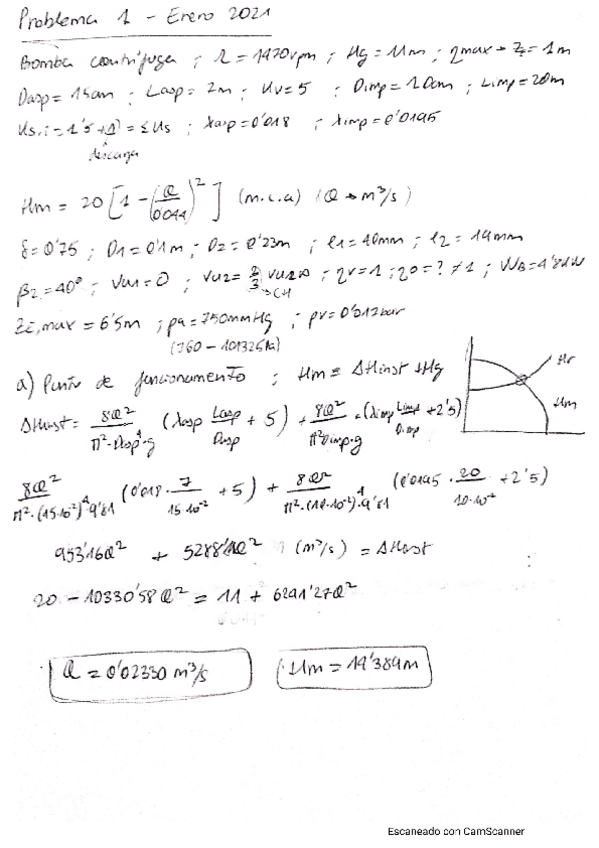 Problema 1 - Enero 2021
Bomba centrífuga ; Ω = 1470rpm ; Hg = 11m ; ηmax → Zₑ = 1m
Dasp = 15cm ; Lasp = 2m ; Kv = 5 ; Dimp = 10cm ; Limp = 20m
Ks,i = 1'5 + 1 = ΣKs ; λasp = 0'018 ; λimp = 0'0195
descarga
Hm = 20 [1 - (Q/0'044)²] (m.c.a) (Q → m³/s)
δ = 0'75 ; D1 = 0'1m ; D2 = 0'23m ; l1 = 40mm ; l2 = 14mm
β2 = 40° ; Vu1 = 0 ; Vu2 = 2/3 Vu2∞ ; ηv = 1 ; ηo = ? ≠ 1 ; WB = 4'8kW
→CH
Zₑ,max = 6'5m ; pa = 750mmHg ; pv = 0'012bar
(760 - 101325Pa)
a) Punto de funcionamiento ; Hm = ΔHinst + Hg
Hr
Hm
ΔHinst = 8Q²/(π²·Dasp⁴·g) (λasp Lasp/Dasp + 5) + 8Q²/(π²Dimp⁴·g) · (λimp Limp/Dimp + 2'5)
8Q²/(π²·(15·10⁻²)⁴·9'81) (0'018 · 7/(15·10⁻²) + 5) + 8Q²/(π²·(10·10⁻²)⁴·9'81) (0'0195 · 20/(10·10⁻²) + 2'5)
953'16Q² + 5288'1Q² (m³/s) = ΔHinst
20 - 10330'58Q² = 11 + 6241'27Q²
Q = 0'02330 m³/s
Hm = 14'384m
Escaneado con CamScanner